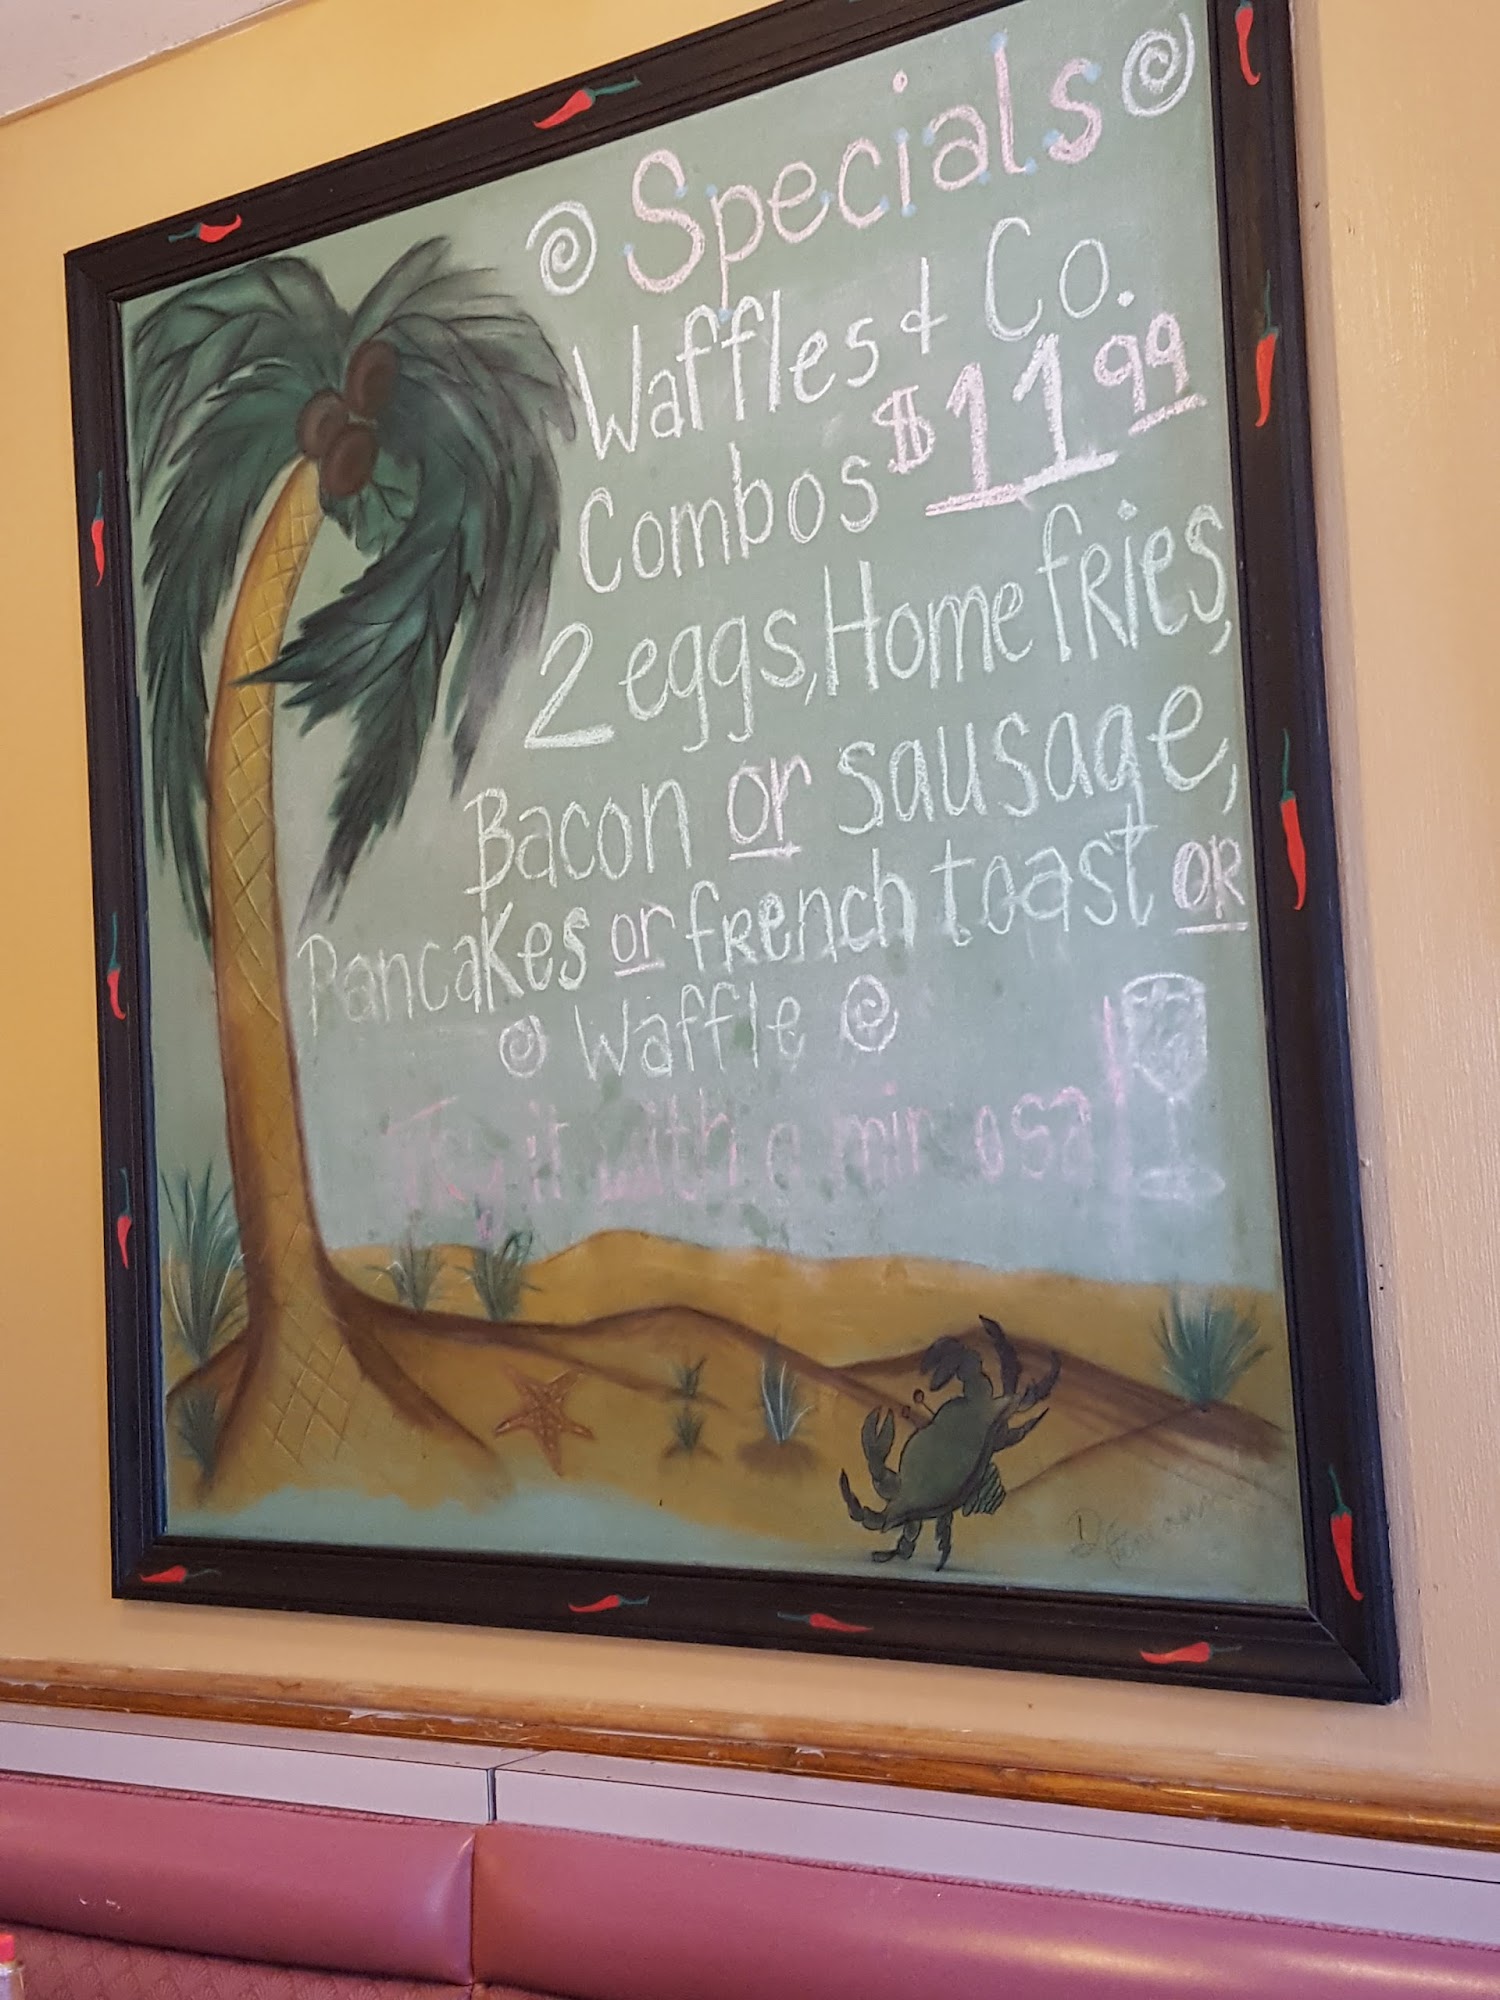 Specials
Waffles & Co.
Combos $11.99
2 eggs, Home fRies,
Bacon or sausage,
Pancakes or fRench toast OR
Waffle
Try it with a mimosa!